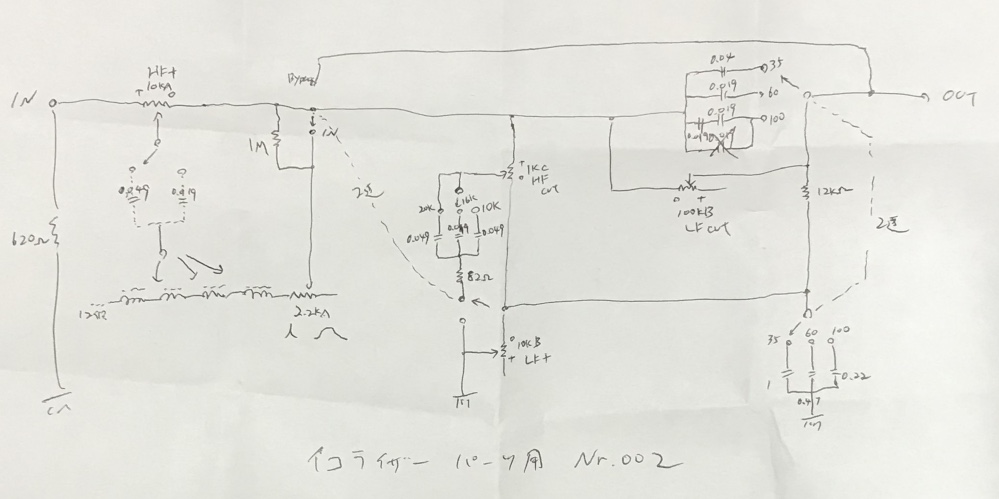 HF+
10KA
+ o
IN
Bypass
IN
1M
0.049 0.019
620Ω
2連
2.2KA
1KC
HF
CUT
20K 16K 10K
0.049 0.049 0.049
82Ω
10KB
LF+
0.04 35
0.019 60
0.019 100
OUT
100KB
LF CUT
12KΩ
2連
35 60 100
1 0.47 0.22
イコライザー パーツ用 Nr.002